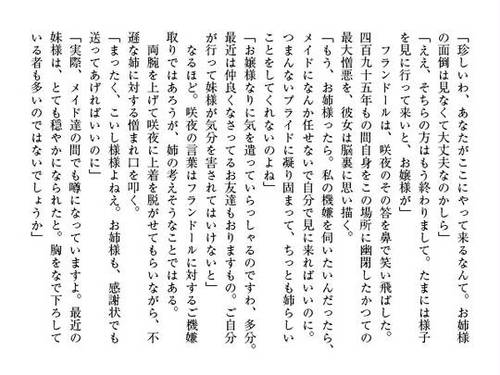 「珍しいわ、あなたがここにやって来るなんて。お姉様
の面倒は見なくて大丈夫なのかしら」
「ええ、そちらの方はもう終わりまして。たまには様子
を見に行って来いと、お嬢様が」
フランドールは、咲夜のその答を鼻で笑い飛ばした。
四百九十五年もの間自身をこの場所に幽閉したかつての
最大憎悪を、彼女は脳裏に思い描く。
「もう、お姉様ったら。私の機嫌を伺いたいんだったら、
メイドになんか任せないで自分で見に来ればいいのに。
つまんないプライドに凝り固まって、ちっとも姉らしい
ことをしてくれないのよね」
「お嬢様なりに気を遣っていらっしゃるのですわ、多分。
最近は仲良くなさってるお友達もおりますもの。ご自分
が行って妹様が気分を害されてはいけないと」
なるほど。咲夜の言葉はフランドールに対するご機嫌
取りではあろうが、姉の考えそうなことではある。
両腕を上げて咲夜に上着を脱がせてもらいながら、不
遜な姉に対する憎まれ口を叩く。
「まったく、こいし様様よねえ。お姉様も、感謝状でも
送ってあげればいいのに」
「実際、メイド達の間でも噂になっていますよ。最近の
妹様は、とても穏やかになられたと。胸をなで下ろして
いる者も多いのではないでしょうか」